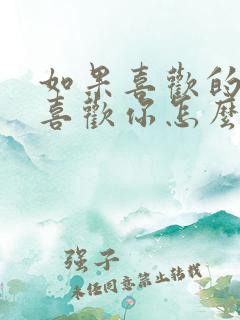 如果喜歡的
喜歡你怎麼
强子
未经同意禁止转载